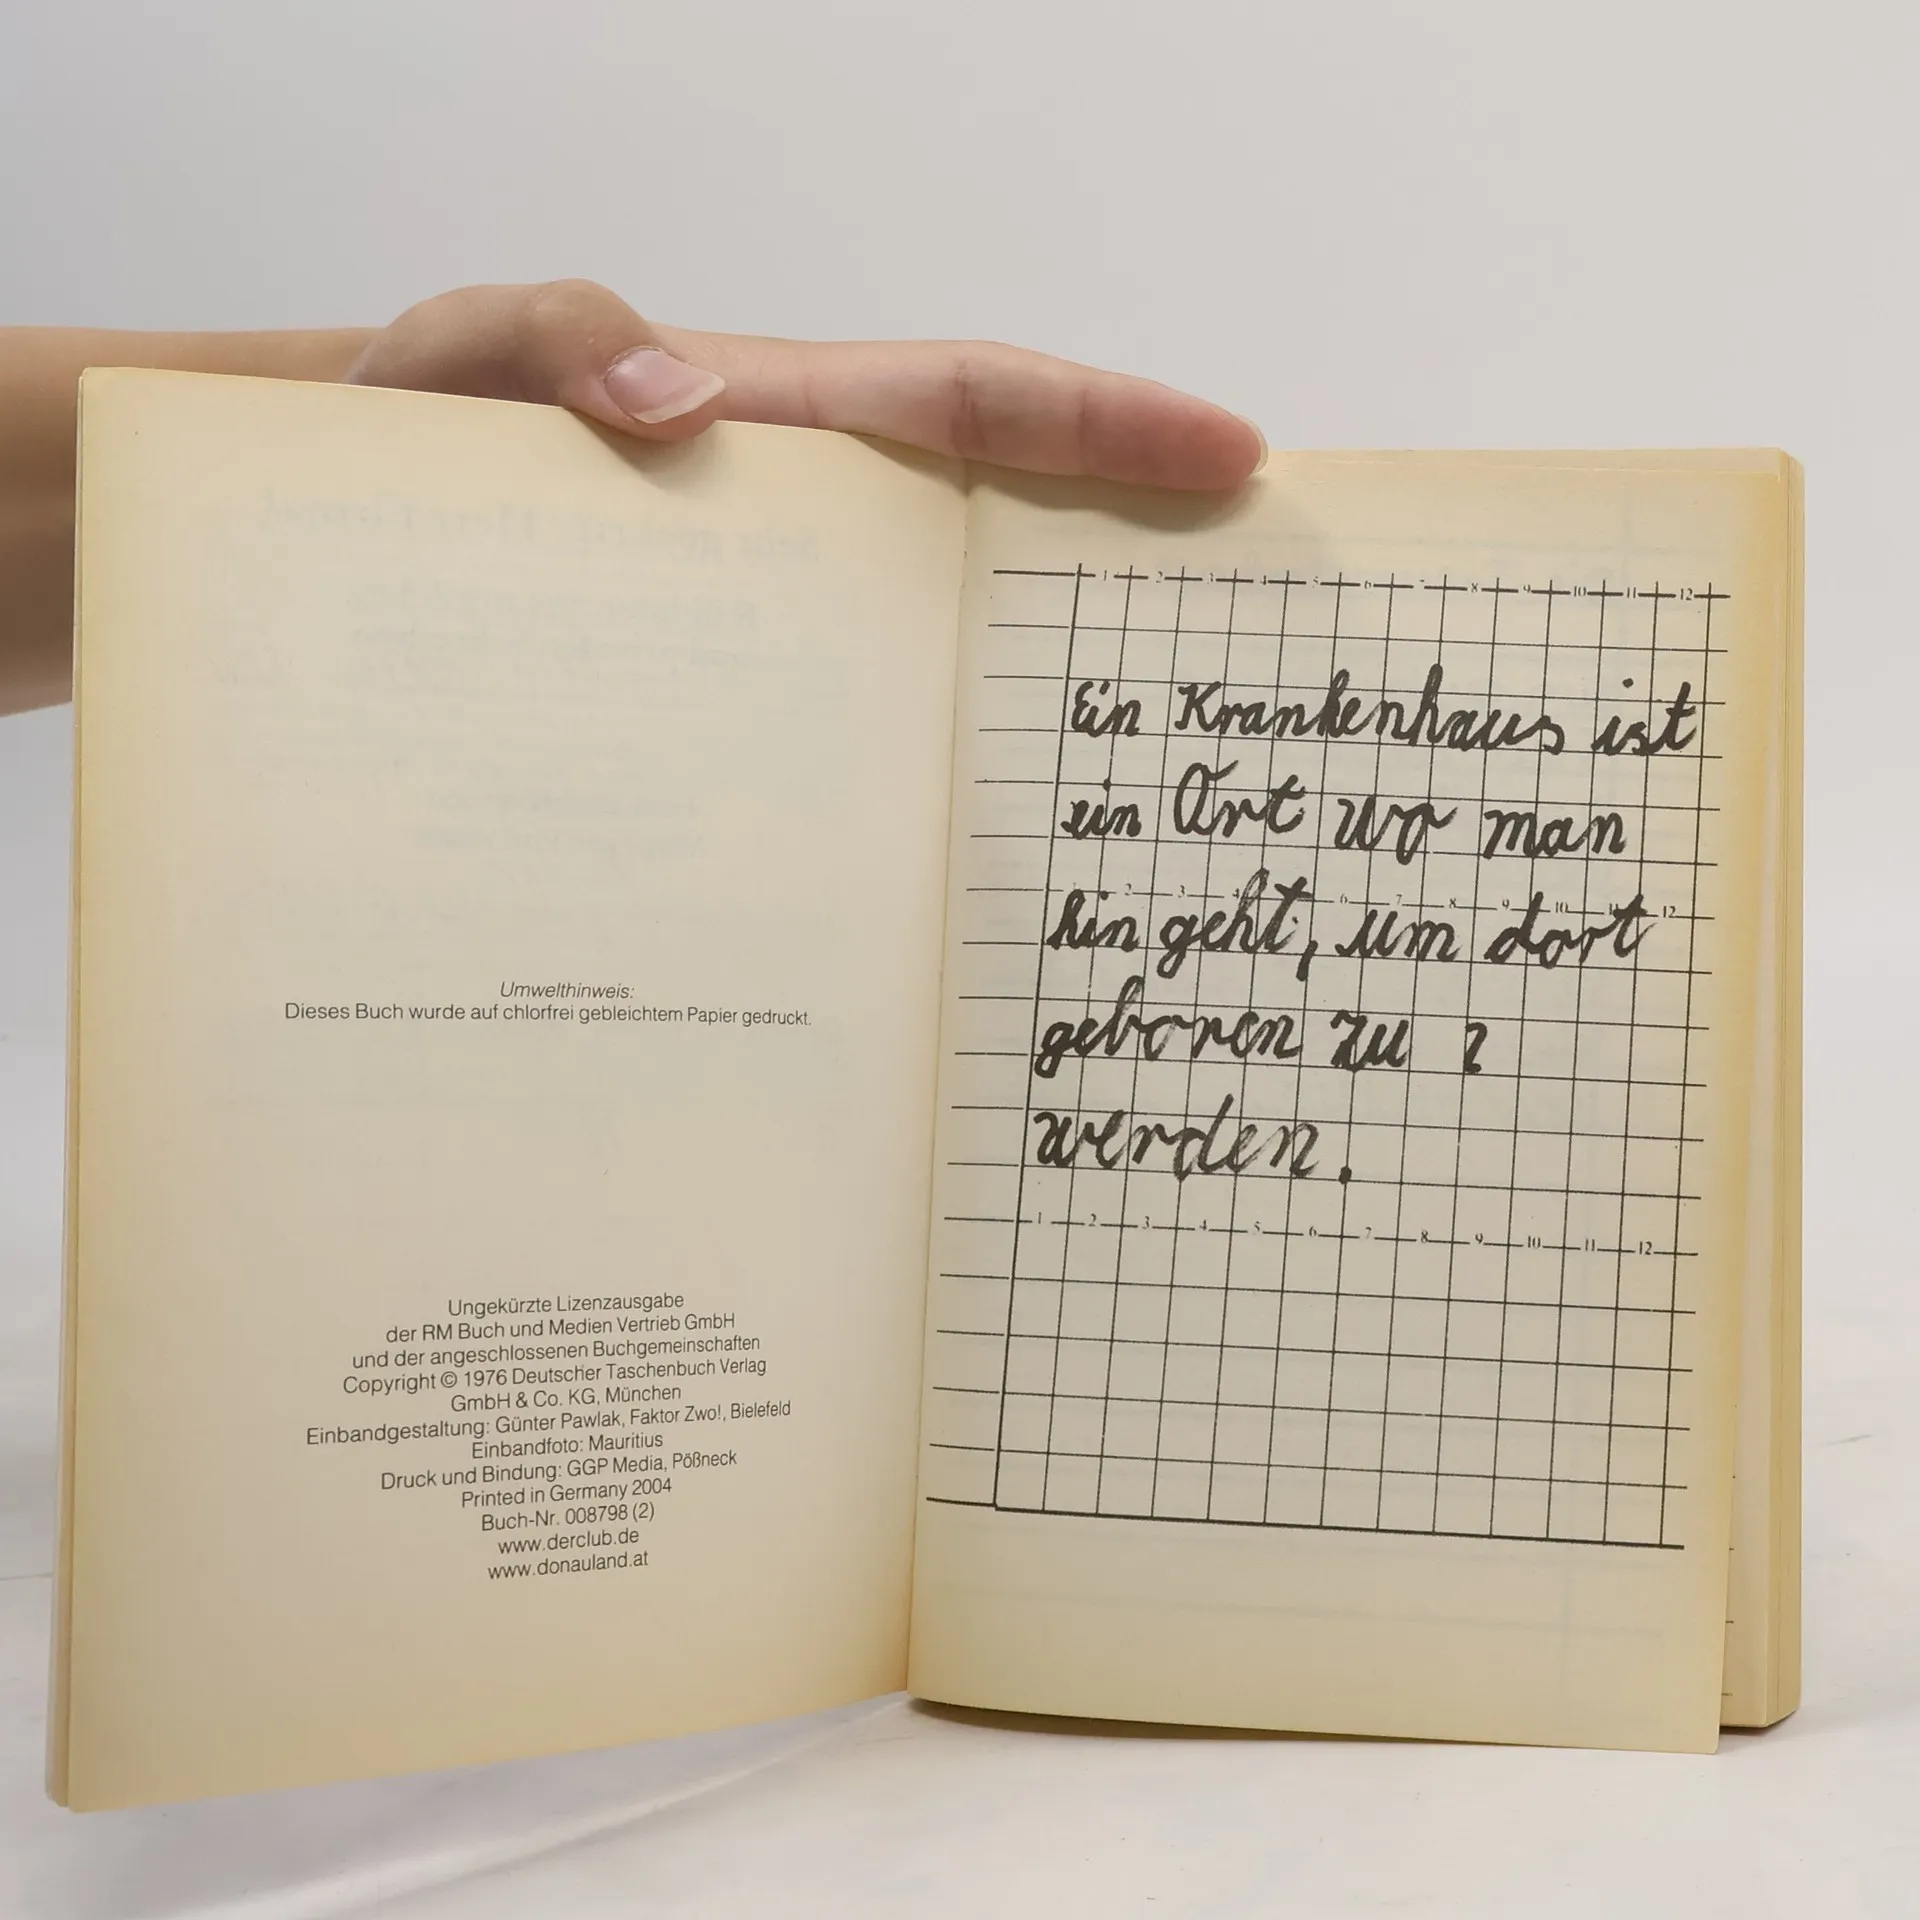 Umwelthinweis:
Dieses Buch wurde auf chlorfrei gebleichtem Papier gedruckt.
Ungekürzte Lizenzausgabe
der RM Buch und Medien Vertrieb GmbH
und der angeschlossenen Buchgemeinschaften
Copyright © 1976 Deutscher Taschenbuch Verlag
GmbH & Co. KG, München
Einbandgestaltung: Günter Pawlak, Faktor Zwo!, Bielefeld
Einbandfoto: Mauritius
Druck und Bindung: GGP Media, Pößneck
Printed in Germany 2004
Buch-Nr. 008798 (2)
www.derclub.de
www.donauland.at
1 2 3 4 5 6 7 8 9 10 11 12
Ein Krankenhaus ist
ein Ort wo man
1 2 3 4 6 7 8 9 10 11 12
hin geht, um dort
geboren zu
werden.
1 2 3 4 5 6 7 8 9 10 11 12